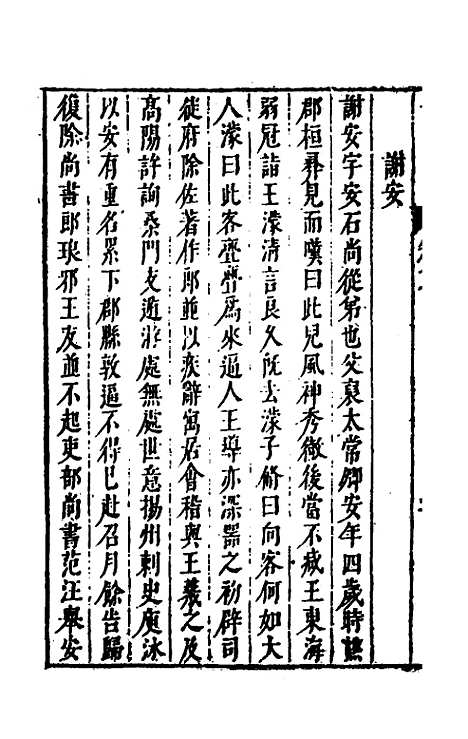 謝安
謝安字安石尚從弟也父裒太常卿安年四歲時譙
郡桓彝見而嘆曰此兒風神秀徹後當不減王東海
弱冠詣王濛清言良久既去濛子脩曰向客何如大
人濛曰此客亹亹為來逼人王導亦深器之初辟司
徒府除佐著作郎並以疾辭寓居會稽與王羲之及
高陽許詢桑門支遁游處無處世意揚州刺史庾冰
以安有重名累下郡縣敦逼不得已赴召月餘告歸
復除尚書郎琅邪王友並不起吏部尚書范汪舉安